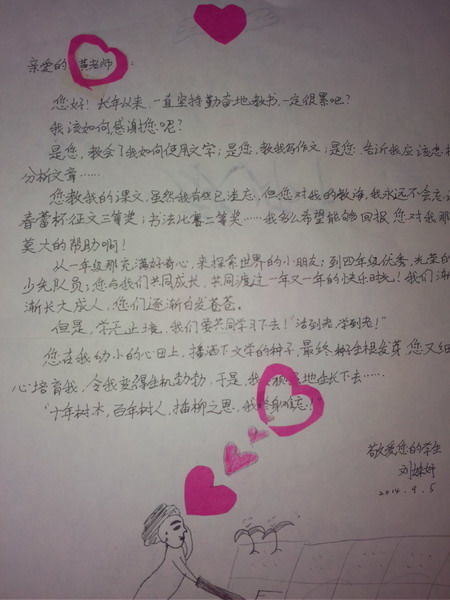 亲爱的 黄老师:
您好!长年以来,一直坚持勤奋地教书,一定很累吧?
我该如何感谢您呢?
是您,教会了我如何使用文字;是您,教我写作文;是您,告诉我应该怎
分析文章……
您教我的课文,虽然我有些已淡忘,但您对我的教诲,我永远不会忘
春蕾杯征文三等奖;书法比赛二等奖……我多么希望能够回报您对我那
莫大的帮助啊!
从一年级那充满好奇心,来探索世界的小朋友;到四年级优秀,光荣的
少先队员;您与我们共同成长,共同渡过一年又一年的快乐时光!我们渐
渐长大成人,您们逐渐白发苍苍。
但是,学无止境,我们要共同学习下去!"活到老,学到老!"
您在我幼小的心田上,播洒下文学的种子,最终,生根发芽,您又细
心培育我,令我变得生机勃勃,于是,我地生长下去……
"十年树木,百年树人,插柳之恩,我终身难忘!"
敬爱您的学生
刘姝妍
2014.9.5